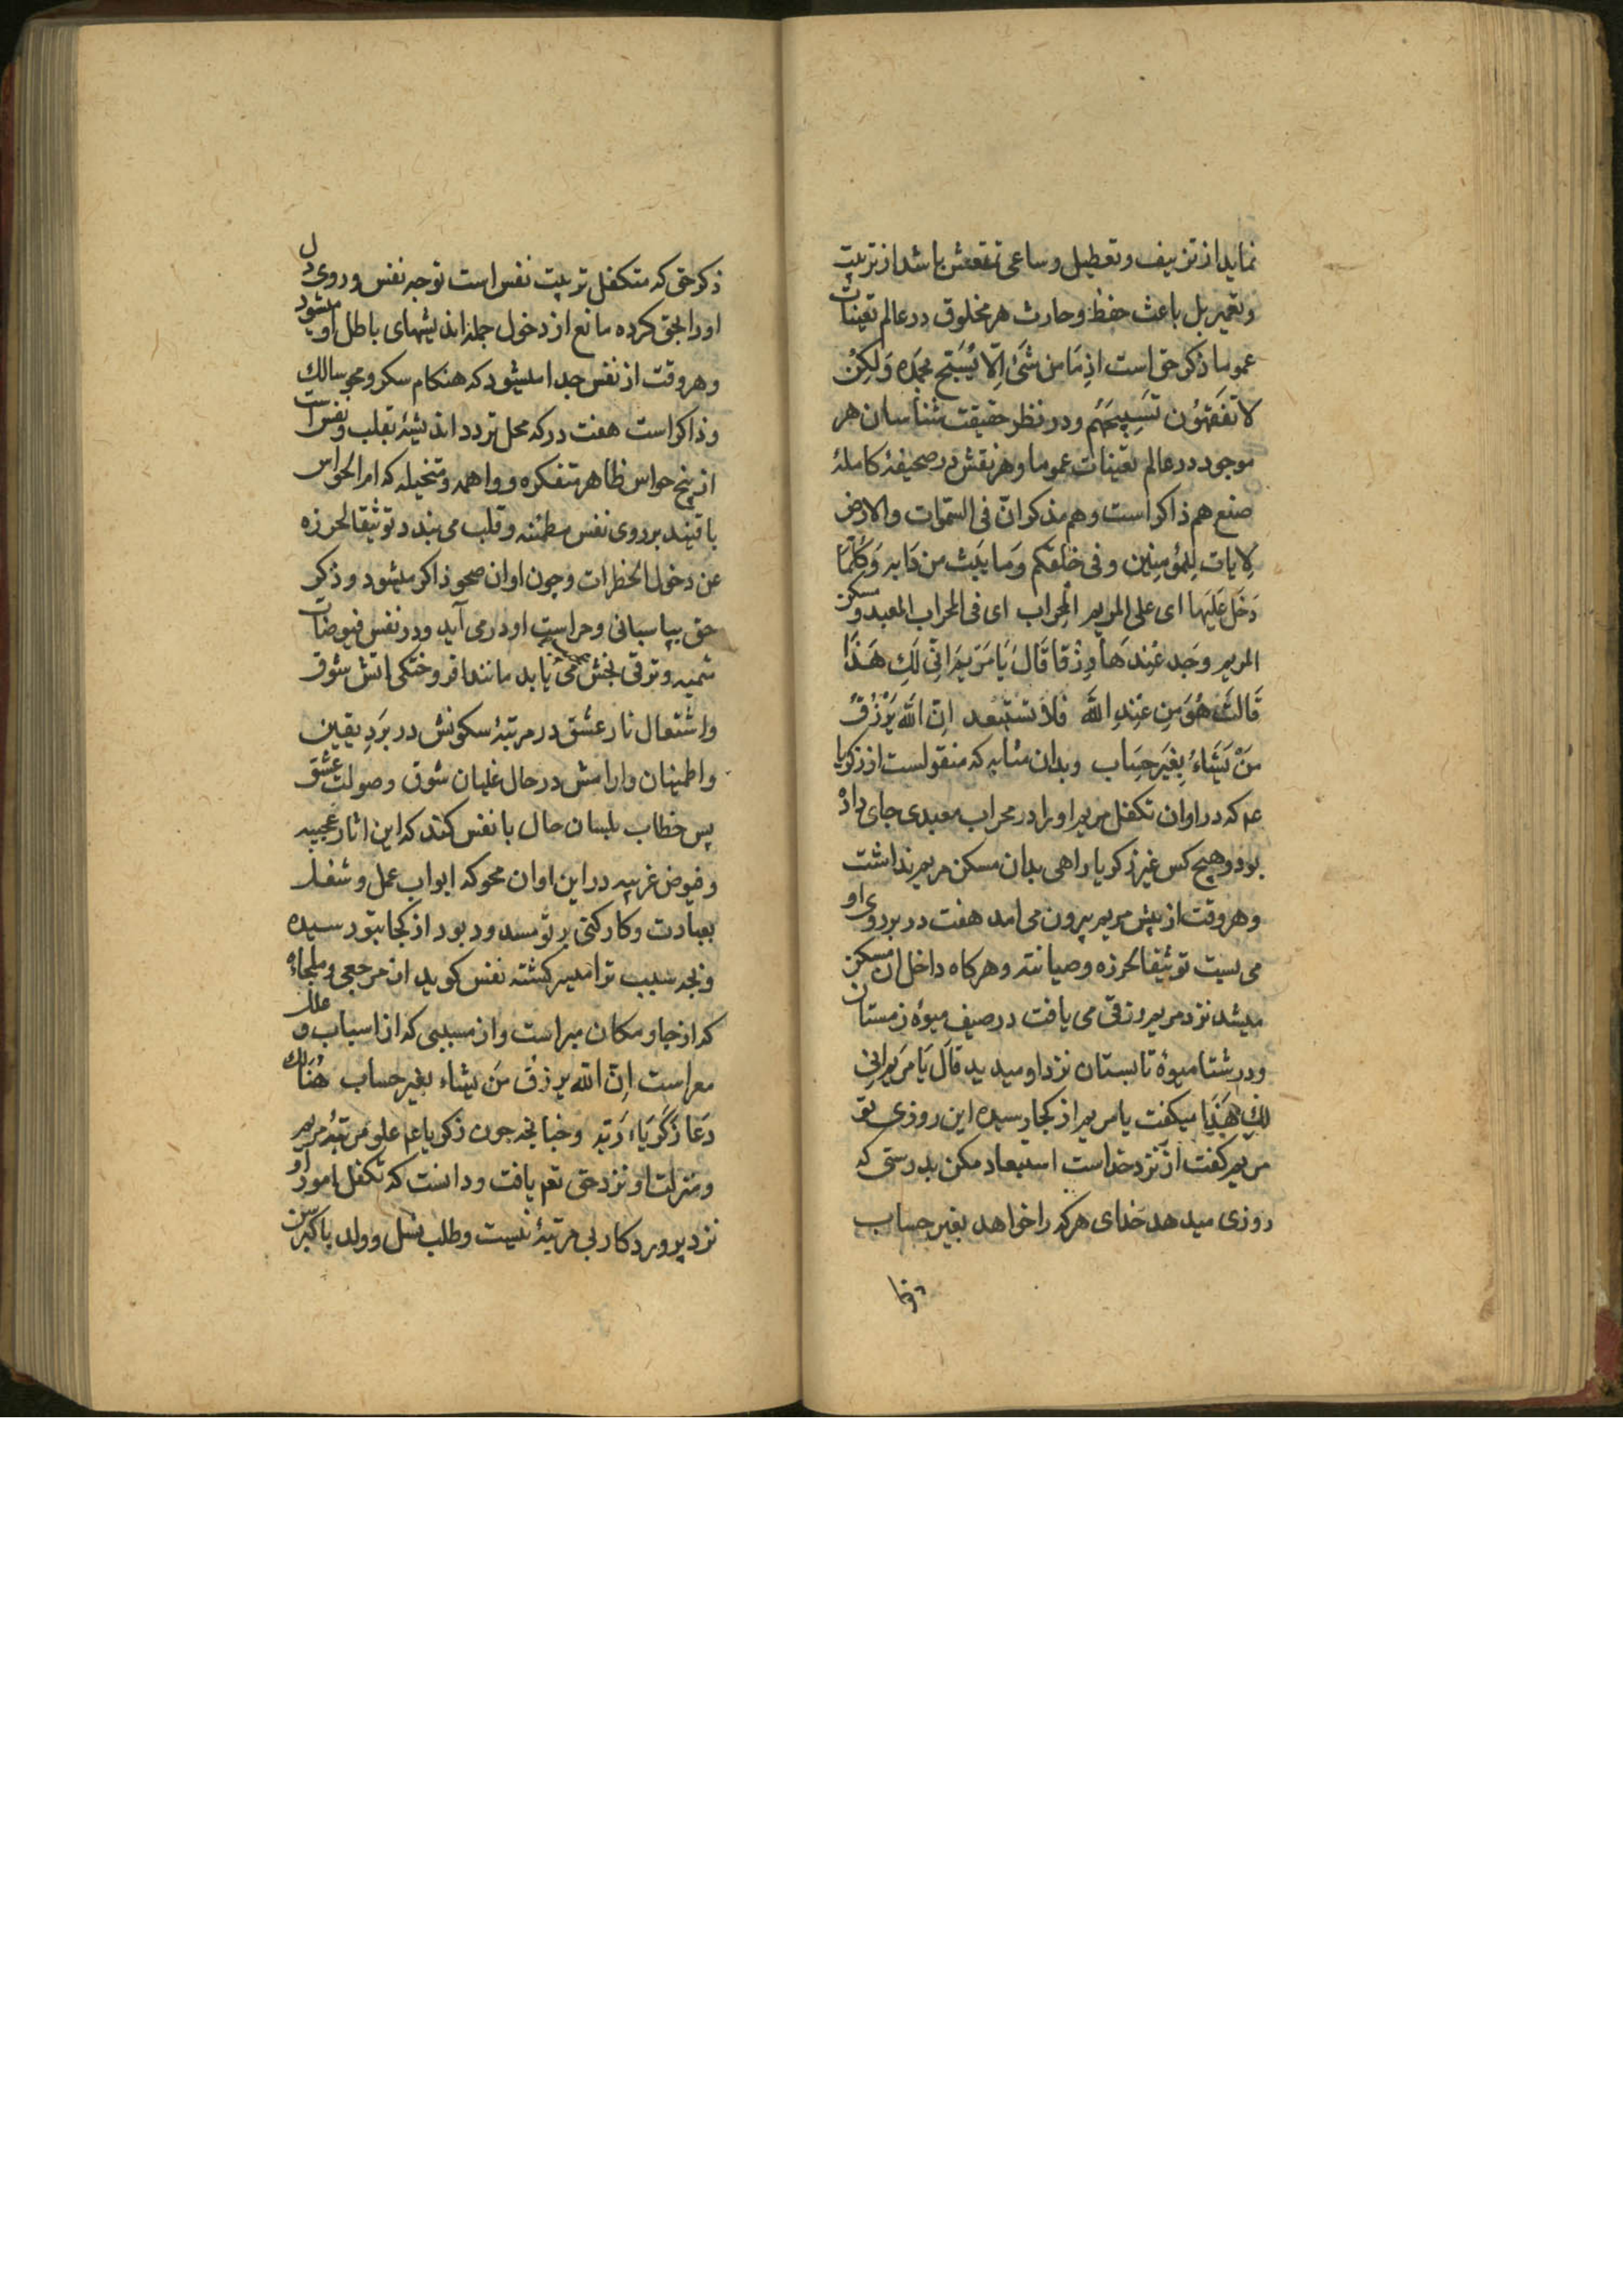 نماید از تزییف و تعطیل و ساعی تمقعش باشد از تربیت
و تعمیر بل باعث حفظ و حارث هر مخلوق در عالم تعینات
عموما ذکر حق است اذ مَا مِن شَیْ اِلّا یُسَبّح بحَمدِه وَلکِنْ
لا تَفقَهُون تَسبِیحَهُم و در نظر حقیقت شناسان هر
موجود در عالم تعینات عموما و هر نقش در صحیفهٔ کاملهٔ
صنع هم ذاکر است و هم مذکر انّ فی السّموات والارض
لِایات لِلمُؤمِنِین وفی خلقکم وَما یَبُث من دَابه وَکُلّمَا
دَخَل عَلَیها ای علی المریم المِحراب ای فی المحراب المعبد و مسکن
المریم وجَد عِندهَا رِزقا قَالَ یَا مَرْیَم اَنّی لَكِ هَذَا
قَالَتْ هُوَ مِن عِندِ اللّه فلا تستبعد اِنّ اللّه یَرْزُقُ
مَنْ یَشَاءُ بِغَیر حِسَاب و بدان مثابه که منقولست از زکریا
عم که در اوان تکفل مریم او را در محراب معبدی جای داده
بود و هیچ کس غیر زکریا راهی بدان مسکن مریم نداشت
و هر وقت از پیش مریم بیرون می امد هفت در بر روی او
می بست توثیقا لحرزه و صیانته و هر کاه داخل ان مسکن
میشد نزد مریم رزقی می یافت در صیف میوهٔ زمستان
و در شتا میوهٔ تابستان نزد او میدید قالَ یَا مَریَم انی
لكِ هَذَا میکفت یا مریم از کجا رسیده این روزی بتو
مریم کفت از نزد خداست استبعاد مکن بدرستی که
روزی میدهد خدای هر که را خواهد بغیر حساب
ذکر حق که متکفل تربیت نفس است توجه نفس و روی دل
او را بحق کرده مانع از دخول جمله اندیشهای باطل او میشود
و هر وقت از نفس جدا میشود که هنکام سکر و محو سالك
و ذاکر است هفت در که محل تردد اندیشهٔ بقلب و نفس است
از پنج حواس ظاهر متفکره و واهمه و متخیله که ام الحواس
باقیند بر روی نفس مطمئنه و قلب می بندد توثیقا لحرزه
عن دخول الخطرات و چون اوان صحو ذاکر میشود و ذکر
حق بپاسبانی و حراست او در می آید و در نفس فیوضات
ثمیه و ترقی بخش می یابد مانند افروختکی اتش شوق
و اشتعال نار عشق در مرتبهٔ سکونش در بَردِ یقین
و اطمینان و ارامش در حال غلیان شوق و صولت عشق
پس خطاب بلسان حال با نفس کند که این اثار عجیبه
و فیوض غریبه در این اوان محو که ابواب عمل و شغل
بعبادت و کارکنی بر تو مسدود بود از کجا بتو رسیده
و بچه سبب ترا میسر کشته نفس کوید از مرجعی و ملجاءٔ
که از جا و مکان مبراست و از مسببی که از اسباب و علل
معراست اِنّ اللّه یرزق مَن یشاء بغیر حساب هُنَالِك
دَعَا زَکَرِیَاء رَبّه و چنانچه چون زکریا عم علو مرتبهٔ مریم
و منزلت او نزد حق تعم یافت و دانست که تکفل امور او
نزد پروردکار بی مرتبهٔ نیست و طلب نسل و ولد با کبر سن